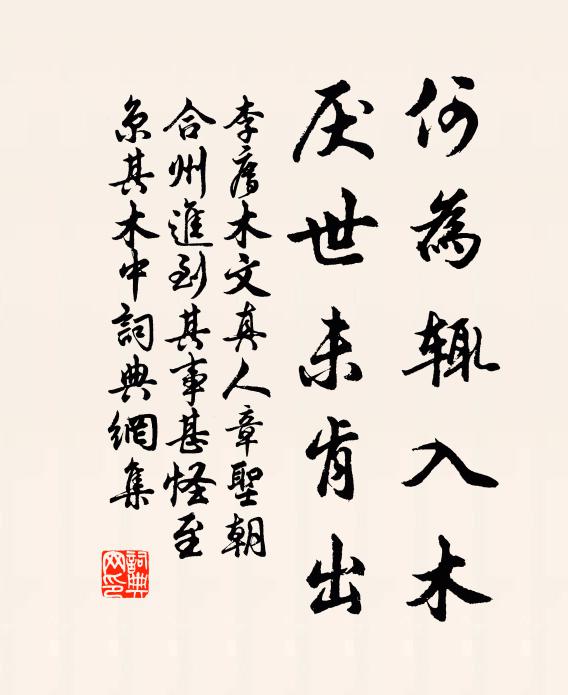 何為輒入木
厌世未肯出
李唐木文真人章聖朝
合州進到其事甚怪至
京其木中詞典網集
詞典
网印